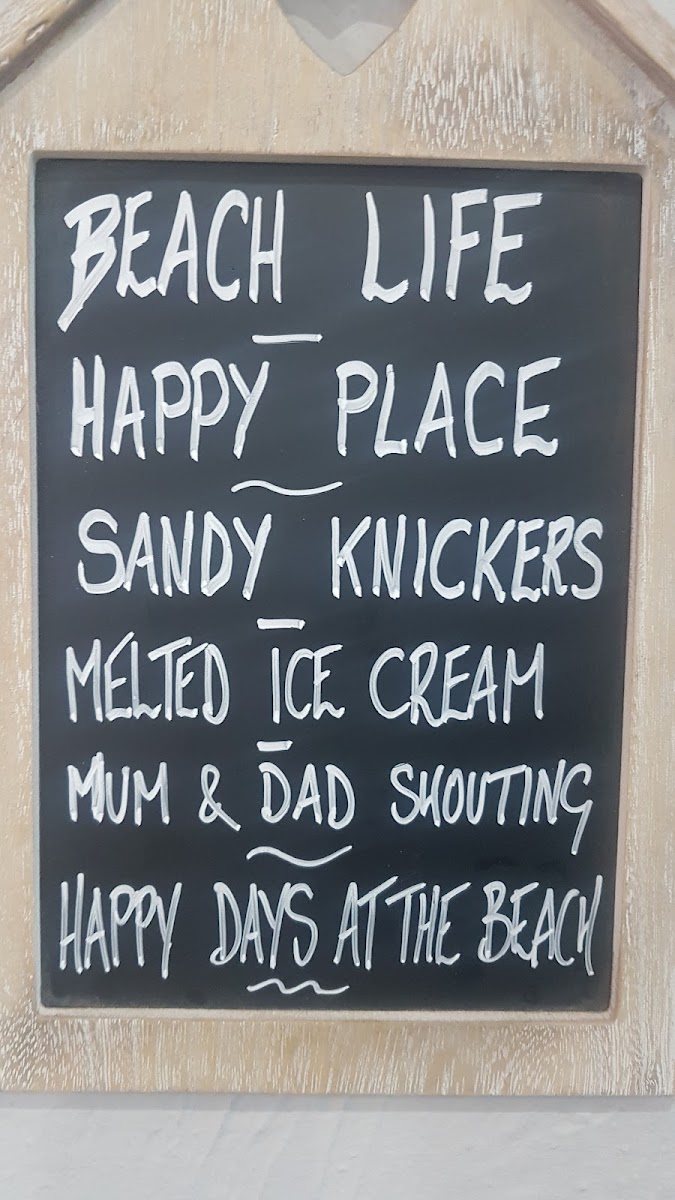 BEACH LIFE
HAPPY PLACE
SANDY KNICKERS
MELTED ICE CREAM
MUM & DAD SHOUTING
HAPPY DAYS AT THE BEACH